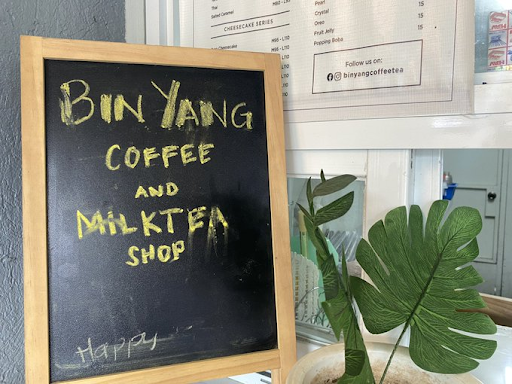 BIN YANG
COFFEE
AND
MILKTEA
SHOP
Happy
Salted Caramel
CHEESECAKE SERIES
Pearl
Crystal 15
Oreo 15
Fruit Jelly 15
Popping Boba 15
Follow us on:
binyangcoffeetea